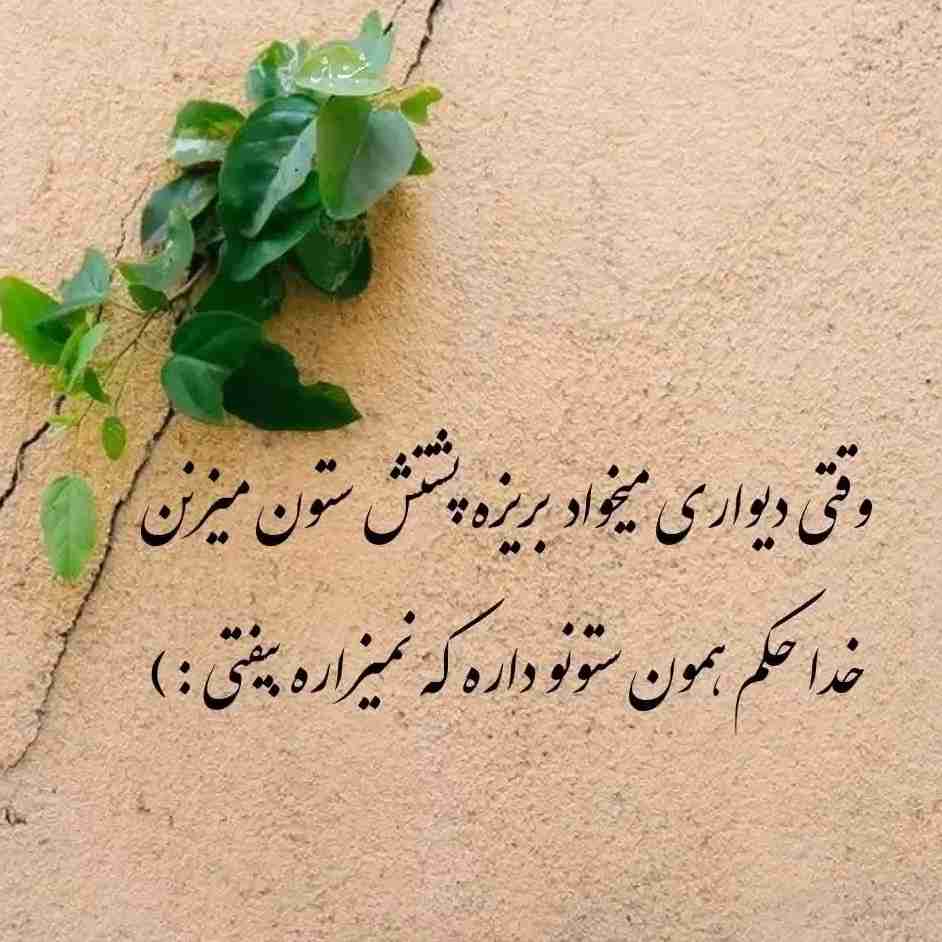 مثبت باش
وقتی دیواری میخواد بریزه پشتش ستون میزنن
خدا حکم همون ستونو داره که نمیزاره بیفتی : )